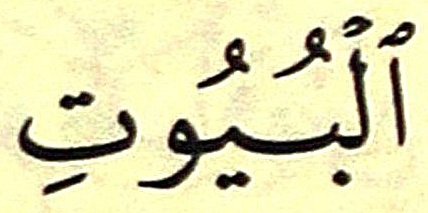 ٱلْبُيُوتِ